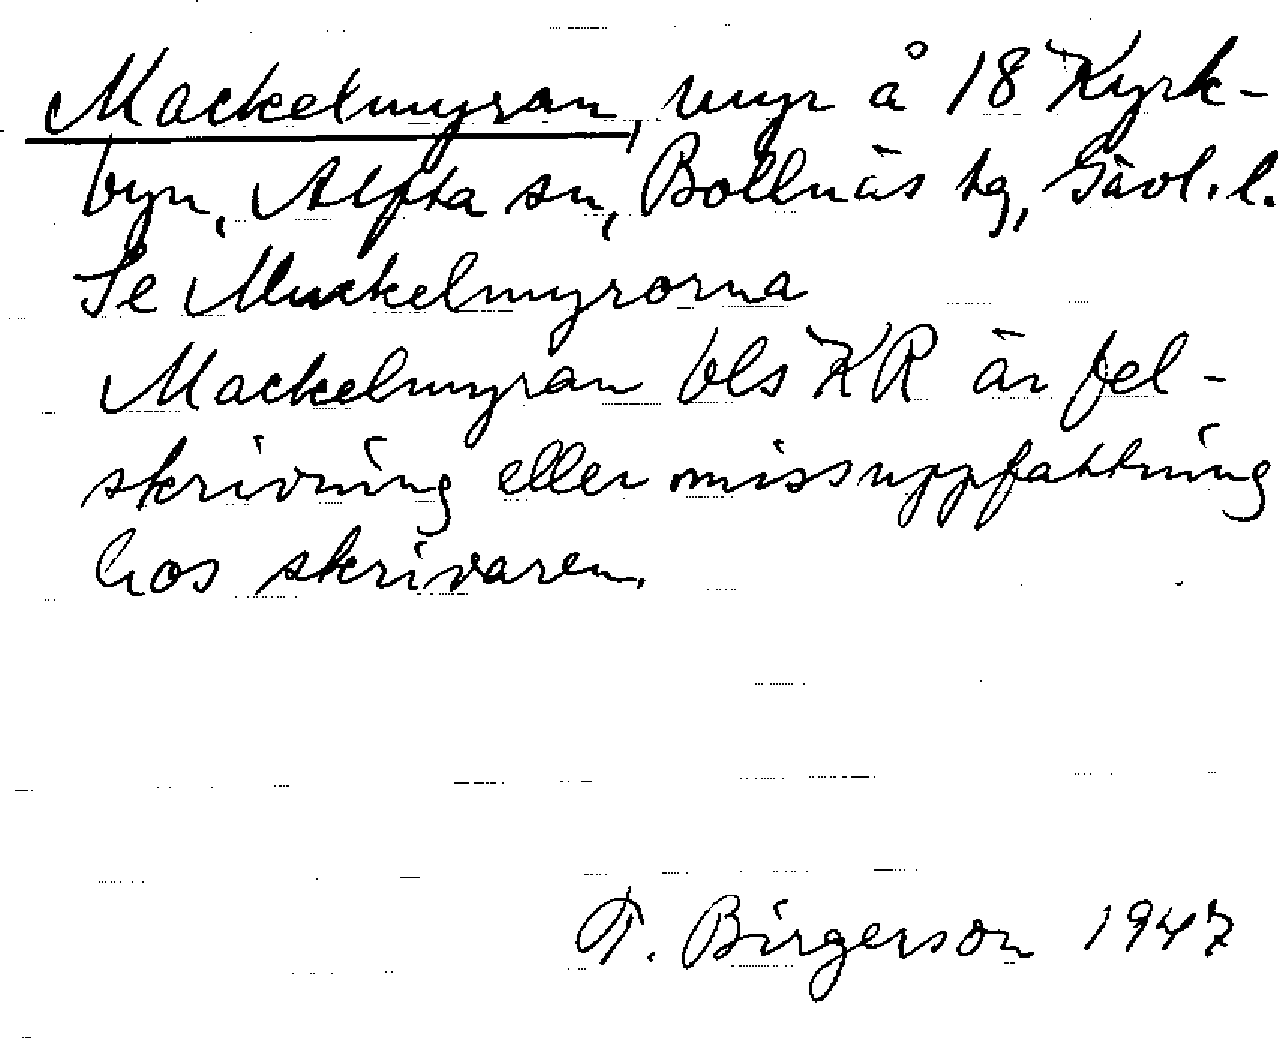 Mackelmyran, myr å 18 Kyrk-
byn, Alfta sn, Bollnäs tg, Gävl. l.
Se Muckelmyrorna
Mackelmyran bls KR är fel-
skrivning eller missuppfattning
hos skrivaren.
F. Birgerson 1947